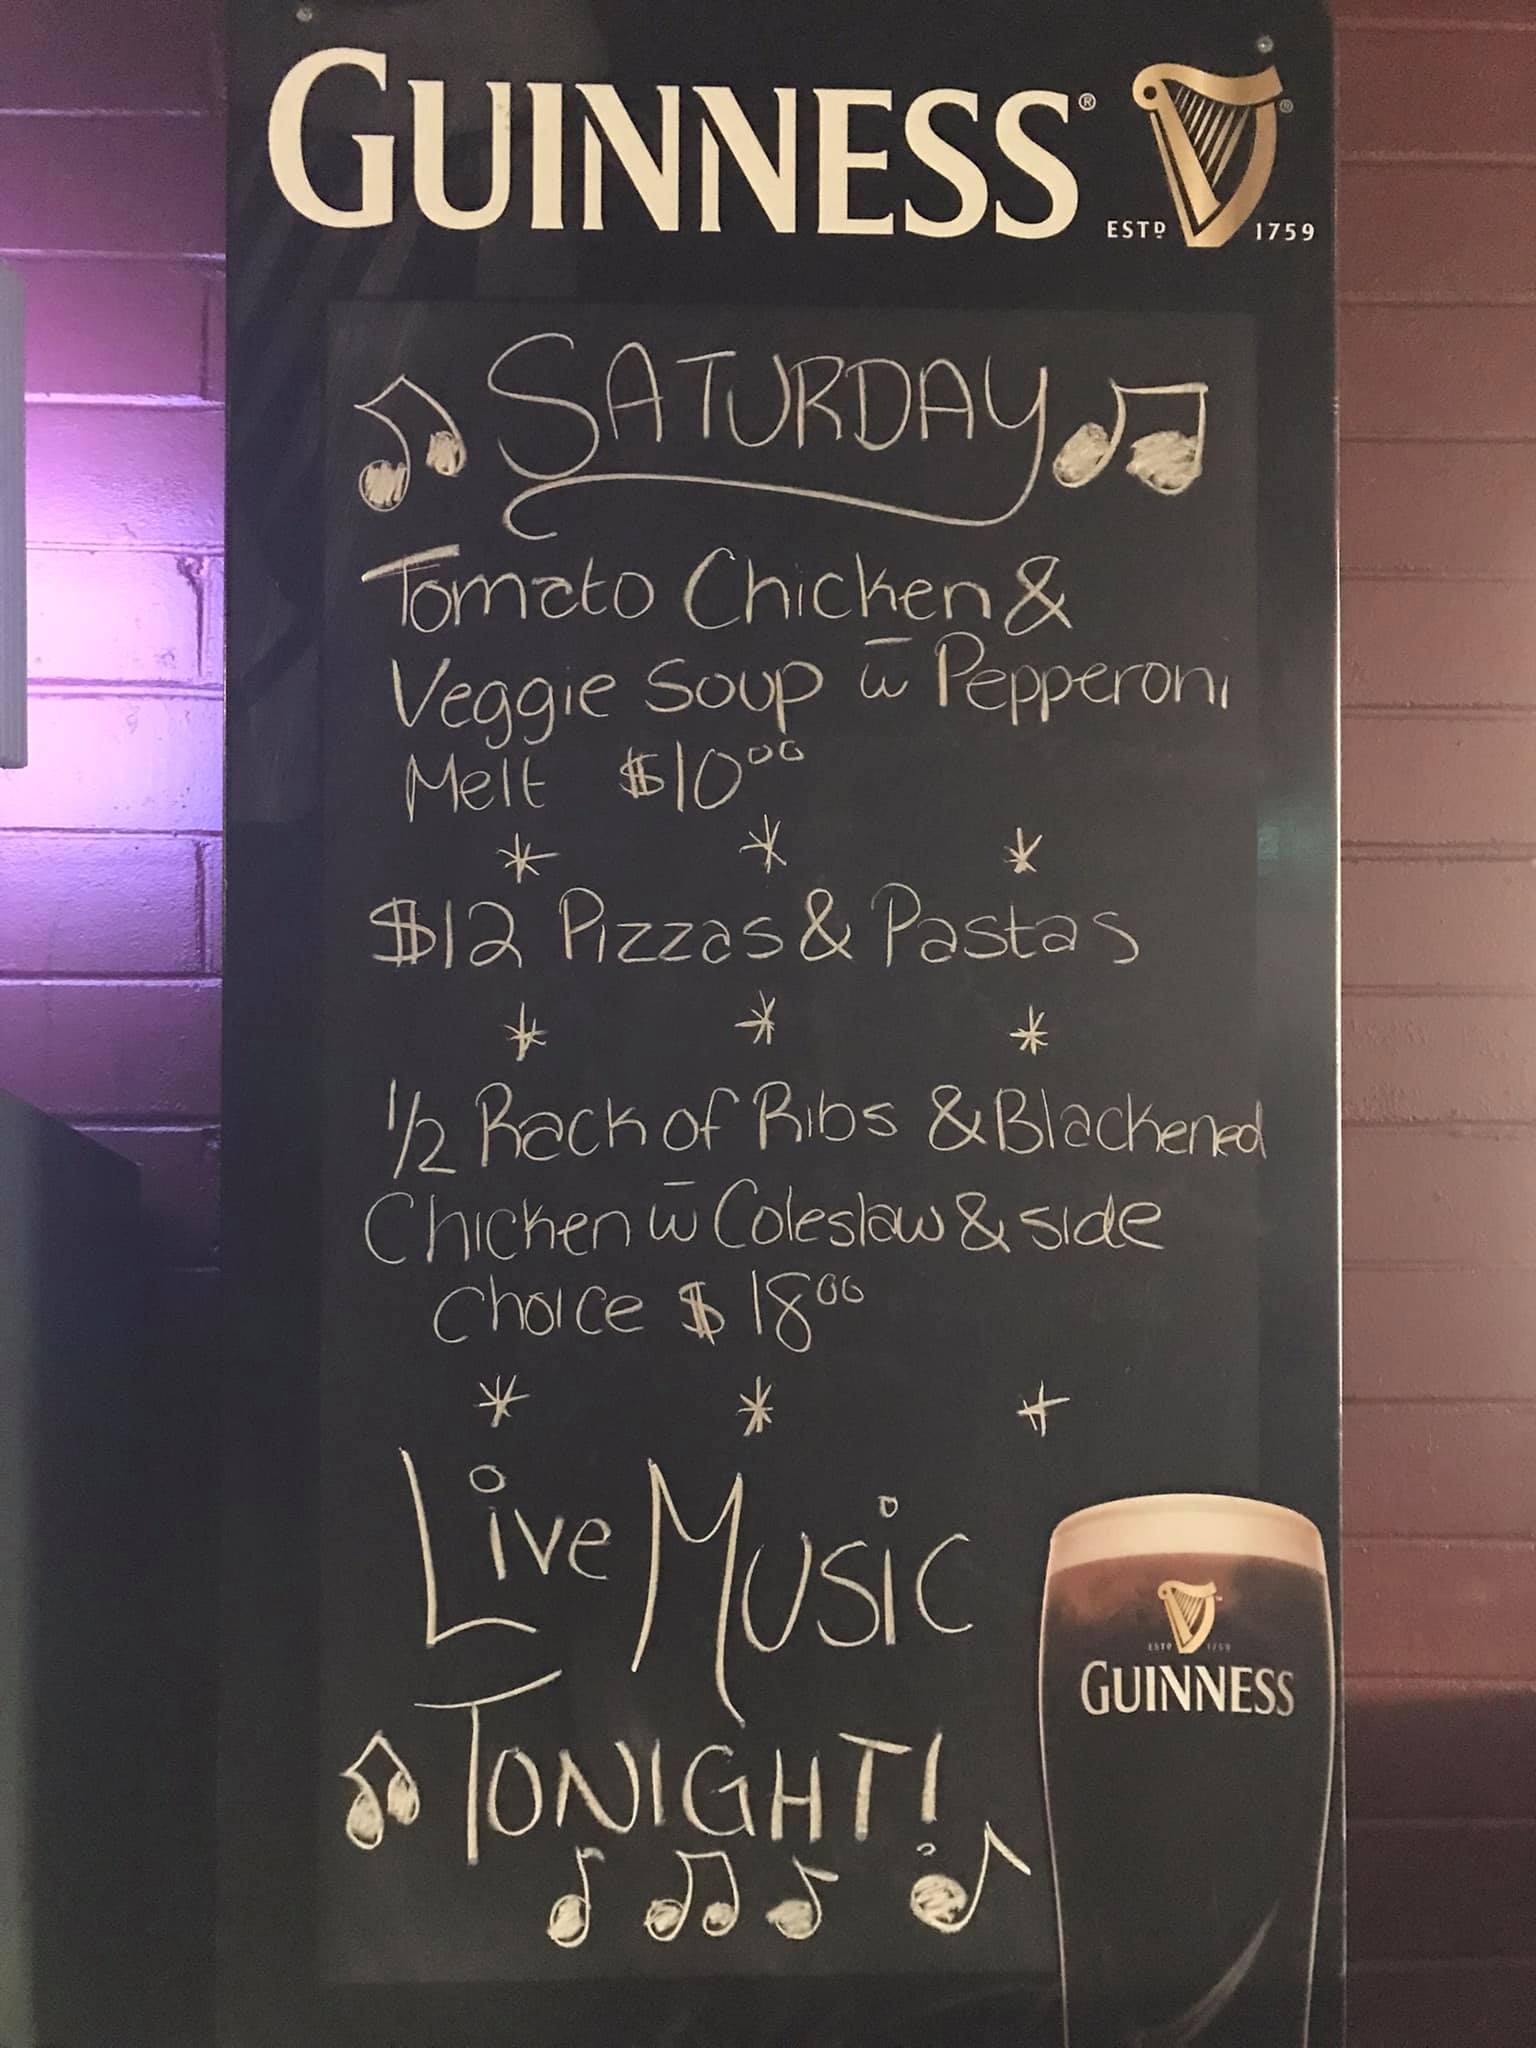 GUINNESS®
ESTD 1759 ®
SATURDAY
Tomato Chicken &
Veggie Soup w̄ Pepperoni
Melt $10⁰⁰
* * *
$12 Pizzas & Pastas
* * *
1/2 Rack of Ribs & Blackened
Chicken w̄ Coleslaw & side
choice $18⁰⁰
* * +
Live Music
TONIGHT!
ESTD 1759
GUINNESS